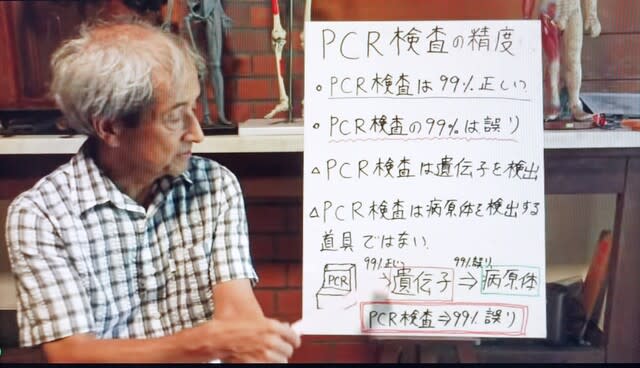 PCR検査の精度
○ PCR検査は99%正しい?
○ PCR検査の99%は誤り
△ PCR検査は遺伝子を検出
△ PCR検査は病原体を検出する
道具ではない
99%正しい 99%誤り
PCR ⇒ 遺伝子 ⇒ 病原体
PCR検査⇒99%誤り